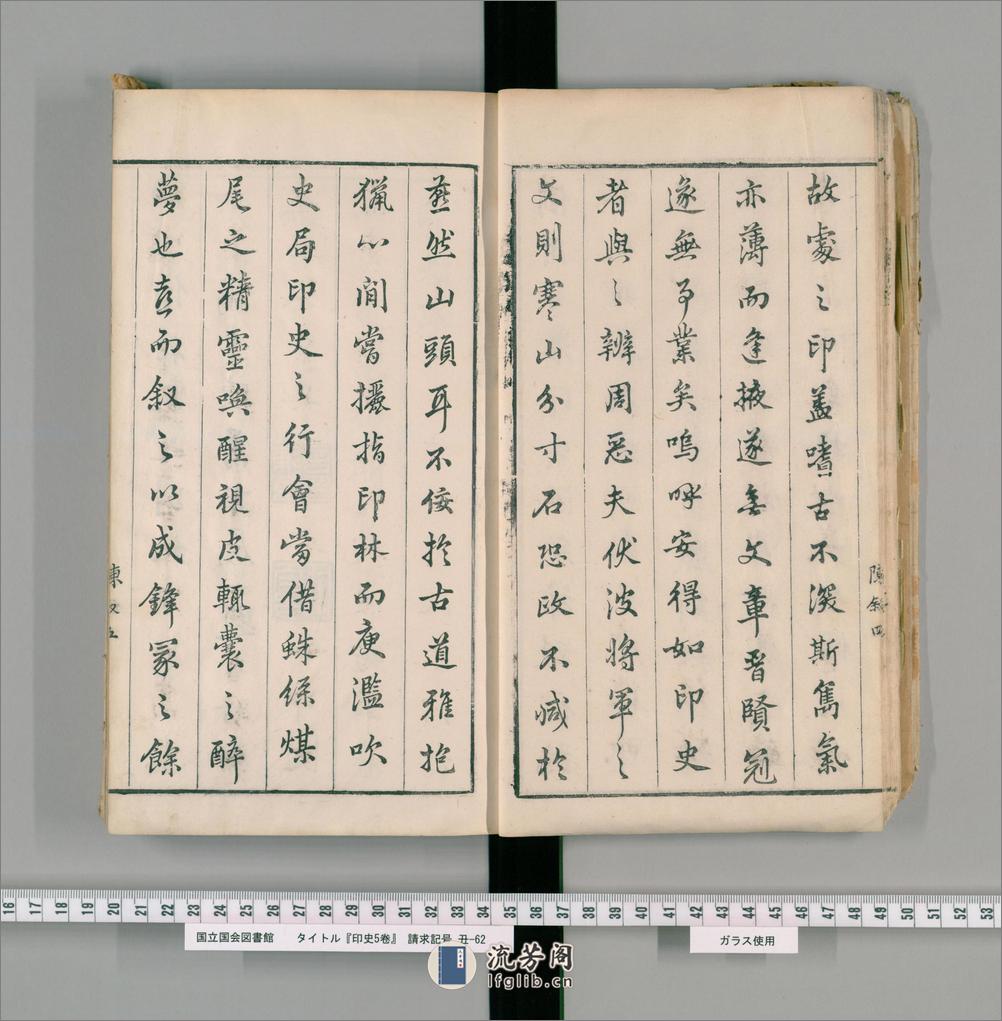 故處之印蓋嗜古不深斯雋氣
亦薄而逢掖遂無文章晉賢冠
遂無事業矣嗚呼安得如印史
者與之辦周惡夫伏波將軍之
文則寒山分寸石恐政不減於
燕然山頭耳不佞於古道雅抱
獵心閒嘗攝指印林而庚濫吹
史局印史之行會當借蛛絲煤
尾之精靈喚醒視皮輒囊之醉
夢也喜而叙之以成鋒冢之餘
陳叙四
陳叙五
16 17 18 19 20 21 22 23 24 25 26 27 28 29 30 31 32 33 34 35 36 37 38 39 40 41 42 43 44 45 46 47 48 49 50 51 52 53
国立国会図書館 タイトル『印史5巻』 請求記号 丑-62
ガラス使用
流芳阁
lfglib.cn